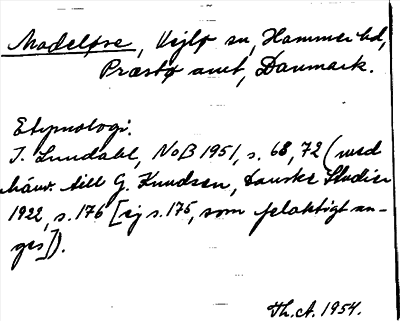 Madeløse, Vejlø sn, Hammer hd,
Præstø amt, Danmark.
Etymologi.
I. Lundahl, NoB 1951, s. 68, 72 (med
hänv. till G. Knudsen, Danske Studier
1922, s. 176 [ej s. 175, som felaktigt an-
ges]).
Th. A. 1954.